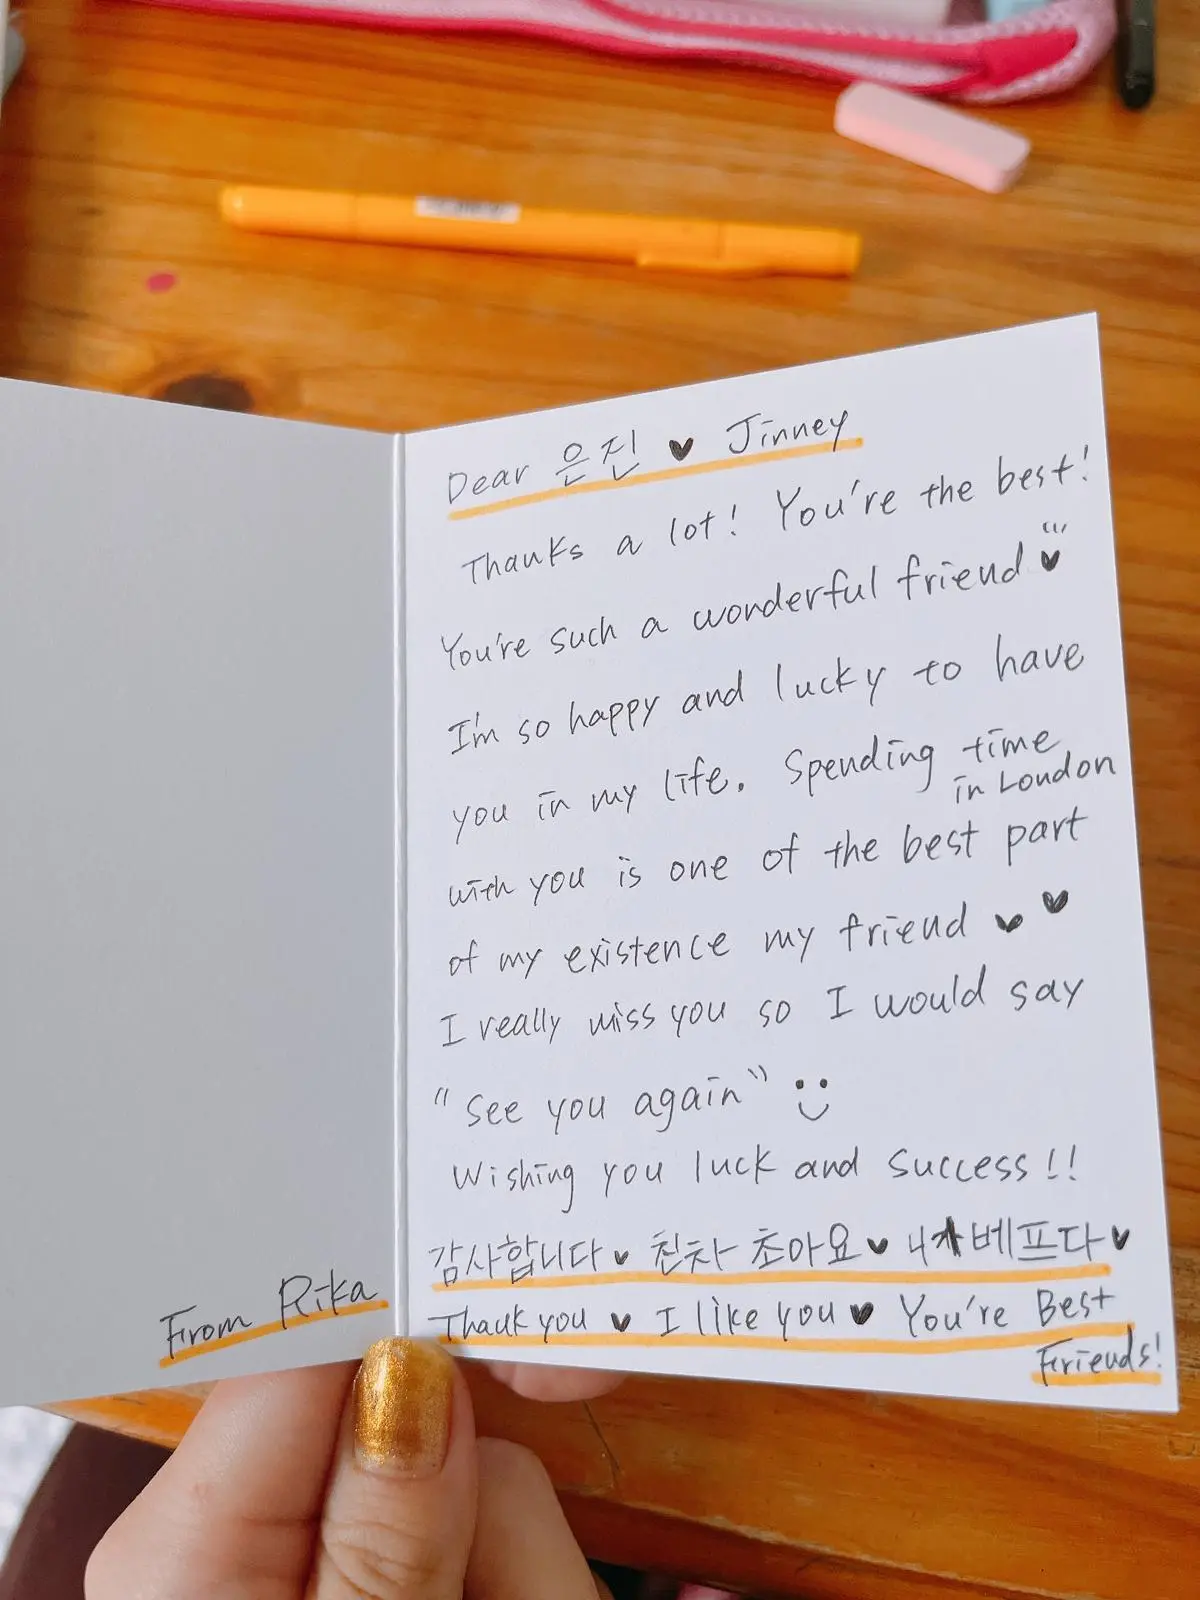 Dear 은진 ♥ Jinney
Thanks a lot! You're the best!
You're such a wonderful friend ♥
I'm so happy and lucky to have
you in my life. Spending time
in London
with you is one of the best part
of my existence my friend ♥ ♥
I really miss you so I would say
"See you again" :)
Wishing you luck and success!!
감사합니다 ♥ 진차 초아요 ♥ 베프다 ♥
Thank you ♥ I like you ♥ You're Best
Friends!
From Rika